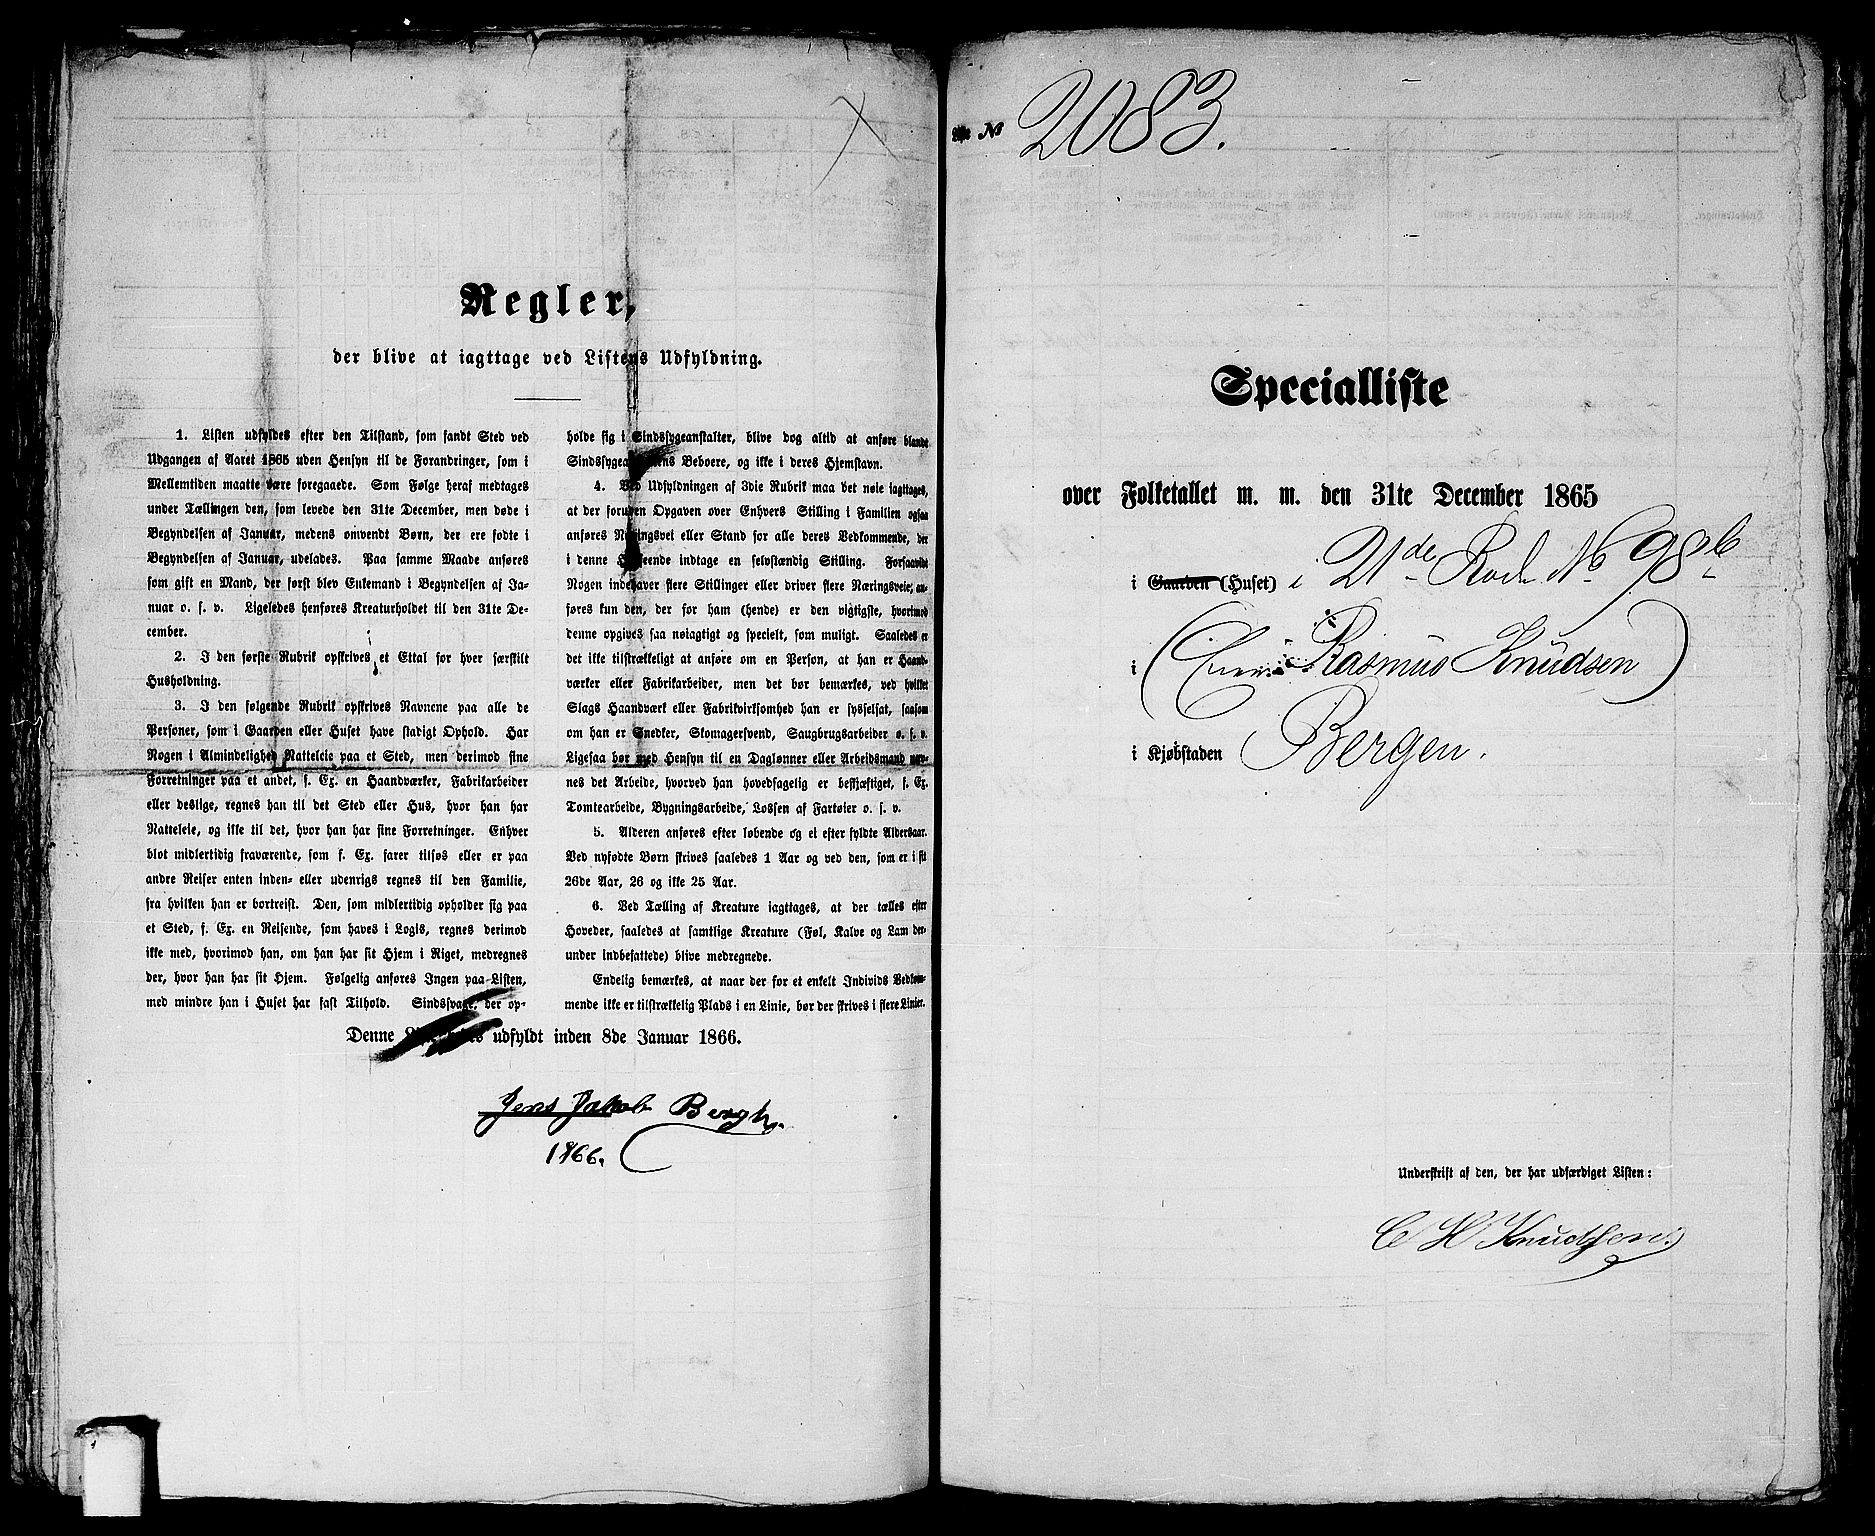 Regler,
der blive at iagttage ved Listens Udfyldning.
1. Listen udfyldes efter den Tilstand, som fandt Sted ved
Udgangen af Aaret 1865 uden Hensyn til de Forandringer, som i
Mellemtiden maatte være foregaaede. Som Følge heraf medtages
under Tællingen den, som levede den 31te December, men døde i
Begyndelsen af Januar, medens omvendt Børn, der ere fødte i
Begyndelsen af Januar, udelades. Paa samme Maade anføres
som gift en Mand, der først blev Enkemand i Begyndelsen af Ja-
nuar o. s. v. Ligeledes henføres Kreaturholdet til den 31te De-
cember.
2. I den første Rubrik opskrives et Ettal for hver særskilt
Husholdning.
3. I den følgende Rubrik opskrives Navnene paa alle de
Personer, som i Gaarden eller Huset have stadigt Ophold. Har
Nogen i Almindelighed Natteleie paa et Sted, men derimod sine
Forretninger paa et andet, s. Ex. en Haandværker, Fabrikarbeider
eller deslige, regnes han til det Sted eller Hus, hvor han har
Natteleie, og ikke til det, hvor han har sine Forretninger. Enhver
blot midlertidig fraværende, som s. Ex. farer tilsøs eller er paa
andre Reiser enten inden- eller udenrigs regnes til den Familie,
fra hvilken han er bortreist. Den, som midlertidig opholder sig paa
et Sted, s. Ex. en Reisende, som haves i Logis, regnes derimod
ikke med, hvorimod han, om han har sit Hjem i Riget, medregnes
der, hvor han har sit Hjem. Følgelig anføres Ingen paa Listen,
med mindre han i Huset har fast Tilhold. Sindssvage, der op-
holde sig i Sindssygeanstalter, blive dog altid at anføre blandt
Sindssygeanstaltens Beboere, og ikke i deres Hjemstavn.
4. Ved Udfyldningen af 3die Rubrik maa det nøie iagttages,
at der foruden Opgaven over Enhvers Stilling i Familien ogsaa
anføres Næringsvei eller Stand for alle deres Vedkommende, der
i denne Henseende indtage en selvstændig Stilling. Forsaavidt
Nogen indehaver flere Stillinger eller driver flere Næringsveie, an-
føres kun den, der for ham (hende) er den vigtigste, hvorimod
denne opgives saa nøiagtigt og specielt, som muligt. Saaledes er
det ikke tilstrækkeligt at anføre om en Person, at han er Haand-
værker eller Fabrikarbeider, men det bør bemærkes, ved hvilket
Slags Haandværk eller Fabrikvirksomhed han er sysselsat, saasom
om han er Snedker, Skomagersvend, Saugbrugsarbeider o. s. v.
Ligesaa bør med Hensyn til en Dagløner eller Arbeidsmand næv-
nes det Arbeide, hvorved han hovedsagelig er beskjæftiget, s. Ex.
Tomtearbeide, Bygningsarbeide, Lossen af Fartøier o. s. v.
5. Alderen anføres efter løbende og ei efter fyldte Aldersaar.
Ved nyfødte Børn skrives saaledes 1 Aar og ved den, som er i sit
26de Aar, 26 og ikke 25 Aar.
6. Ved Tælling af Kreature iagttages, at der tælles efter
Hoveder, saaledes at samtlige Kreature (Føl, Kalve og Lam der-
under indbefattede) blive medregnede.
Endelig bemærkes, at naar der for et enkelt Individs Vedkom-
mende ikke er tilstrækkelig Plads i en Linie, bør der skrives i flere Linier.
Denne udfyldt inden 8de Januar 1866.
Jens Jakob Bergh.
1866.
№ 2083.
Specialliste
over Folketallet m. m. den 31te December 1865
i Gaarden (Huset) i 21de Rode No 98b
i (Rasmus Knudsen)
i Kjøbstaden Bergen.
Underskrift af den, der har udfærdiget Listen:
C H Knudsen